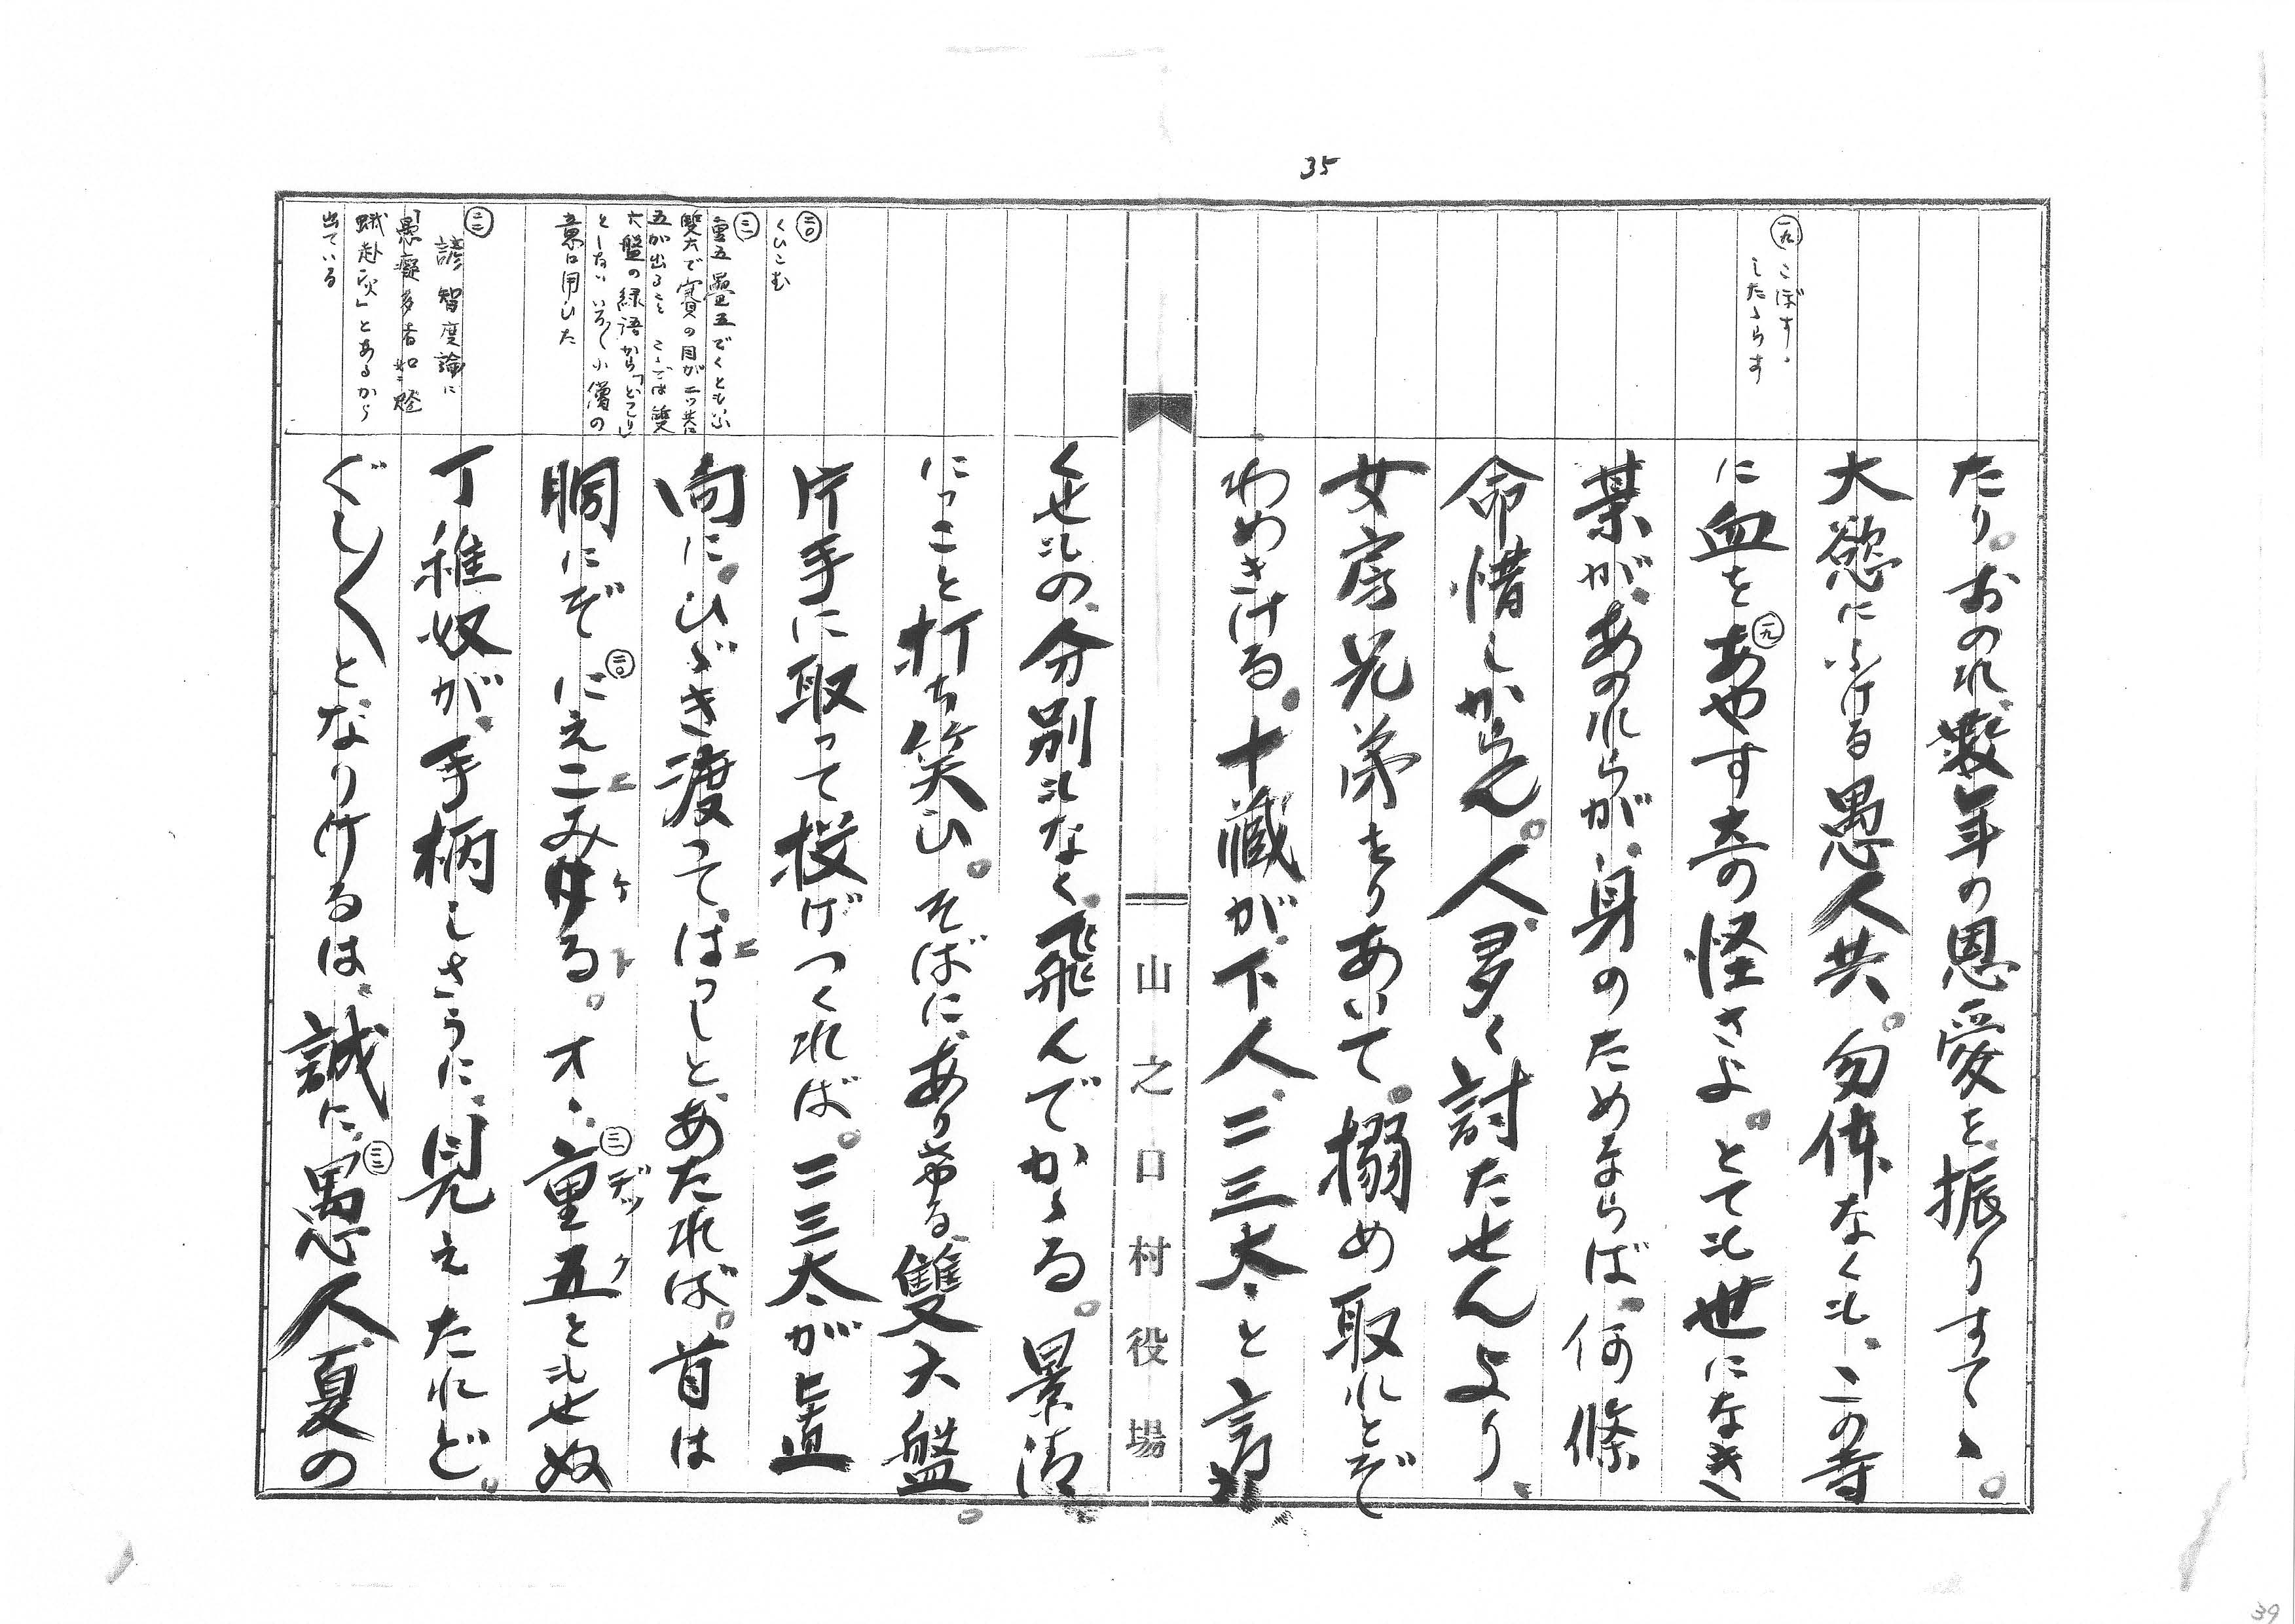 35
たり。おのれ、数年の恩愛を、振りすてゝ。
大慾にふける愚人共。勿体なくも、この寺
に血をあやす㊀九奇の怪さよ。とても世になき
某が、あのれらが、身のためならば、何條
命惜しからん。人多く討たせんより、
女房兄弟をりあいて。搦め取れとぞ
わめきける。十蔵が、下人、二三太、と言ふ
くせもの、分別もなく、飛んでかゝる。景清
にっこと打ち笑ひ。そばに、あり希る、雙六盤。
片手に取って投げつくれば。二三太が、眞
向に、ひゞき渡って、はっしと、あたれば。首は
胴にぞにえこみける。オゝ、重五ともせぬ
丁稚奴が、手柄しさうに、見えたれど。
ぐし〱となりけるは、誠に、愚人、夏の
一九 こぼす、
したゝらす
二〇
くひこむ
二一
重五 疊五でくともいふ
雙六で賽の目が二つ共に
五が出ること こゝでは雙
六盤の縁語から「びくり」
としない いろ〱小僧の
意に用ひた
二二
諺 智度論に
「愚癡多者如㆑
蛾赴㆑火」とあるから
出ている
山之口村役場
39